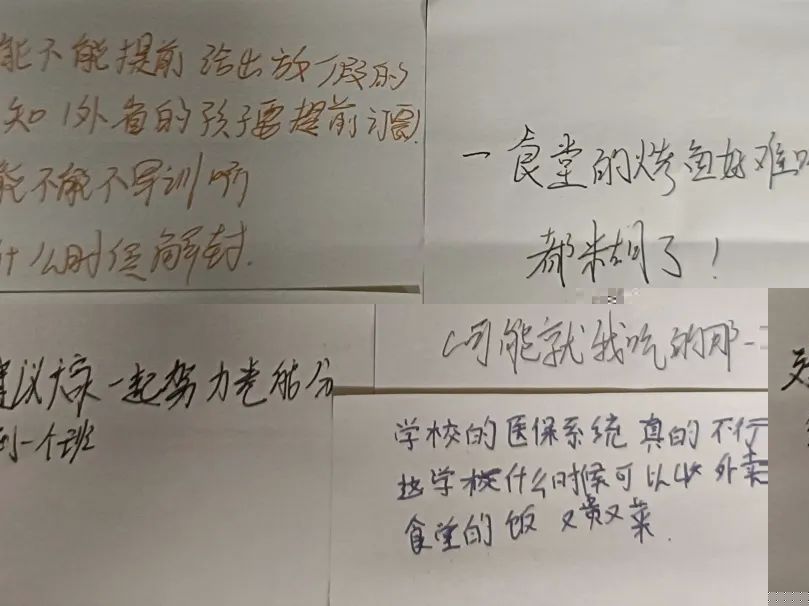 能不能提前给出放假的
知 外省的孩子要提前订票
能不能不军训啊
什么时候解封.
一食堂的烤鱼好难
都糊了！
建议大家一起努力
到一个班
可能就我吃的那一
学校的医保系统真的不行
学校什么时候可以 外卖
食堂的饭 又贵又菜.